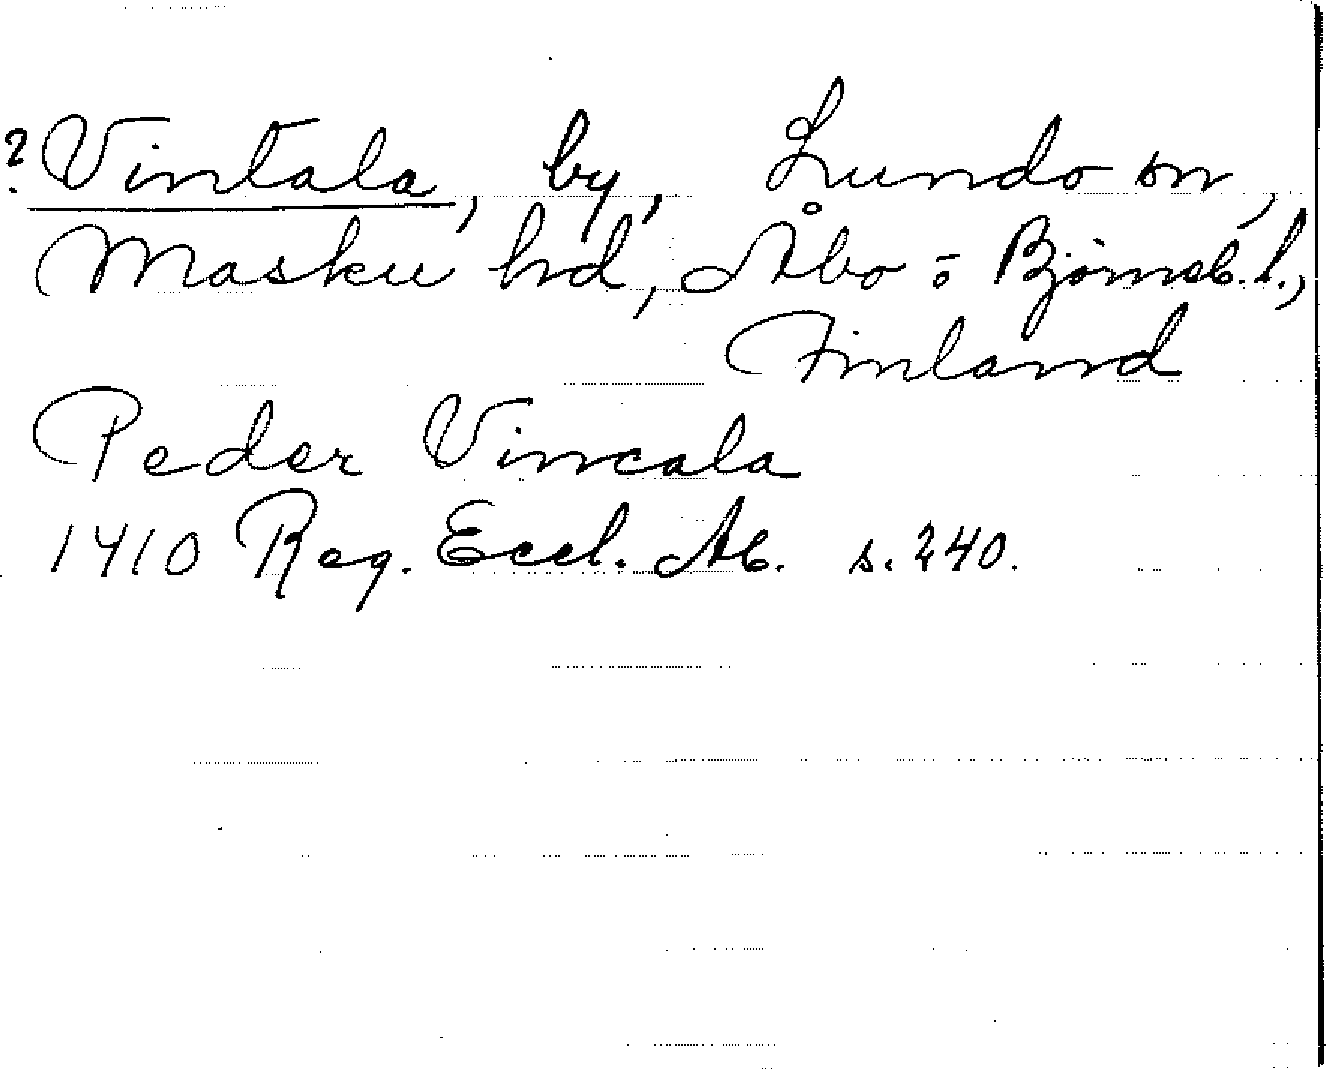 ? Vintala, by, Lundo sn,
Masku hd, Åbo o Björneb. l.,
Finland
Peder Vincala
1410 Reg. Eccl. Ab. s. 240.